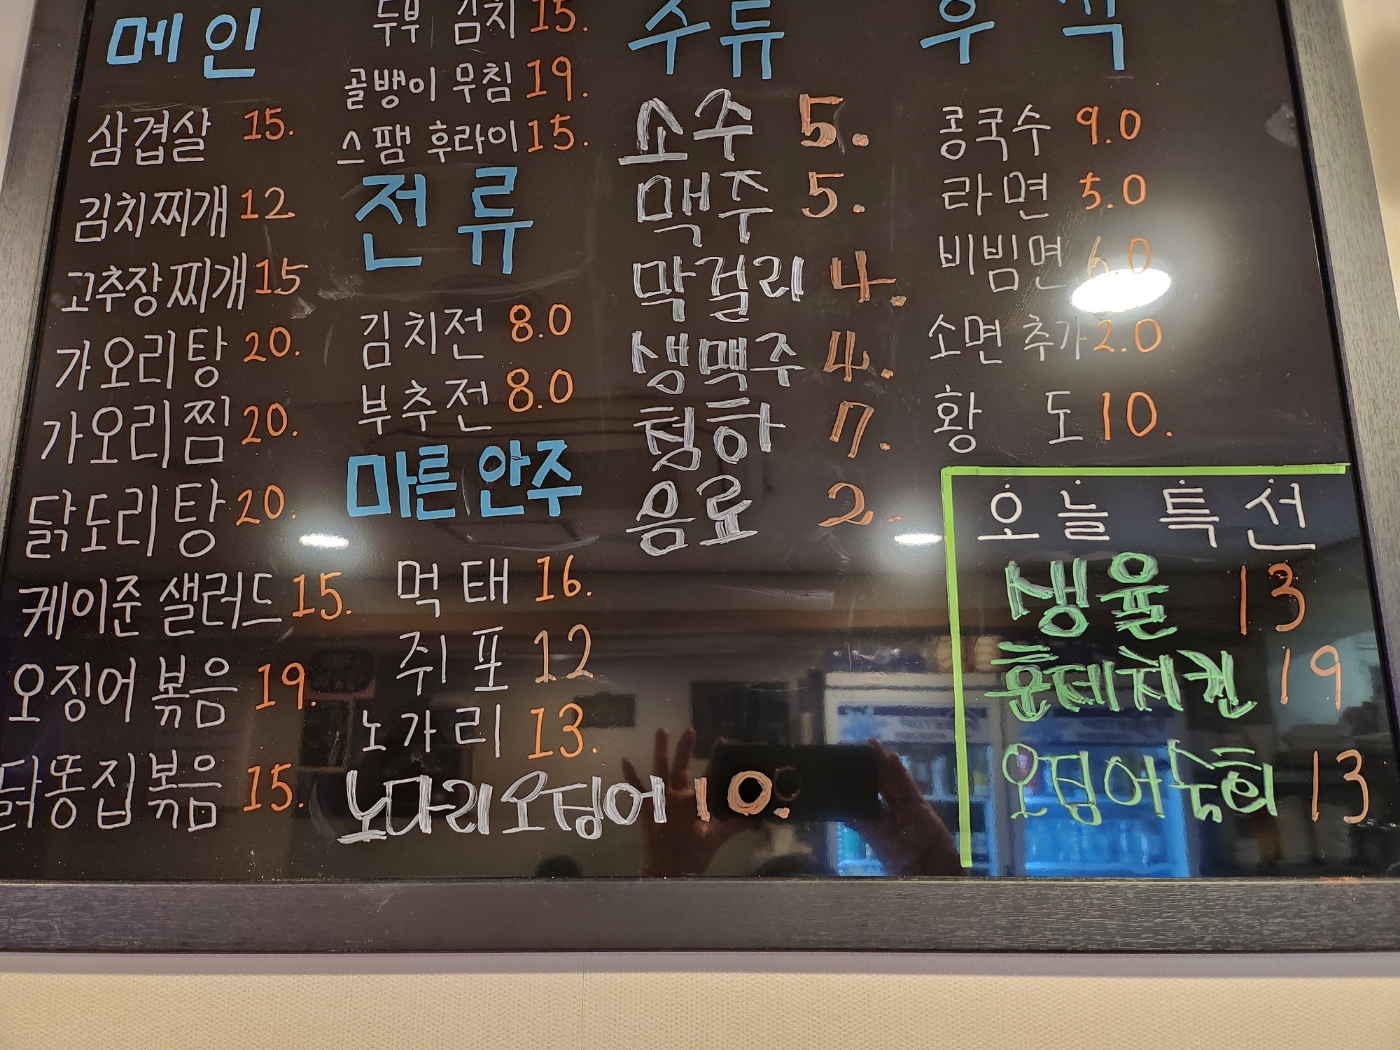 메인
삼겹살 15.
김치찌개 12
고추장찌개 15
가오리탕 20.
가오리찜 20.
닭도리탕 20.
케이준 샐러드 15.
오징어 볶음 19.
닭똥집볶음 15.
두부 김치 15.
골뱅이 무침 19.
스팸 후라이 15.
전류
김치전 8.0
부추전 8.0
마른안주
먹태 16.
쥐포 12
노가리 13.
노다리오징어 10.
주류
소주 5.
맥주 5.
막걸리 4.
생맥주 4.
청하 7.
음료 2.
후식
콩국수 9.0
라면 5.0
비빔면 6.0
소면 추가 2.0
황 도 10.
오늘 특선
생율 13
훈데치킨 19
오징어숙회 13